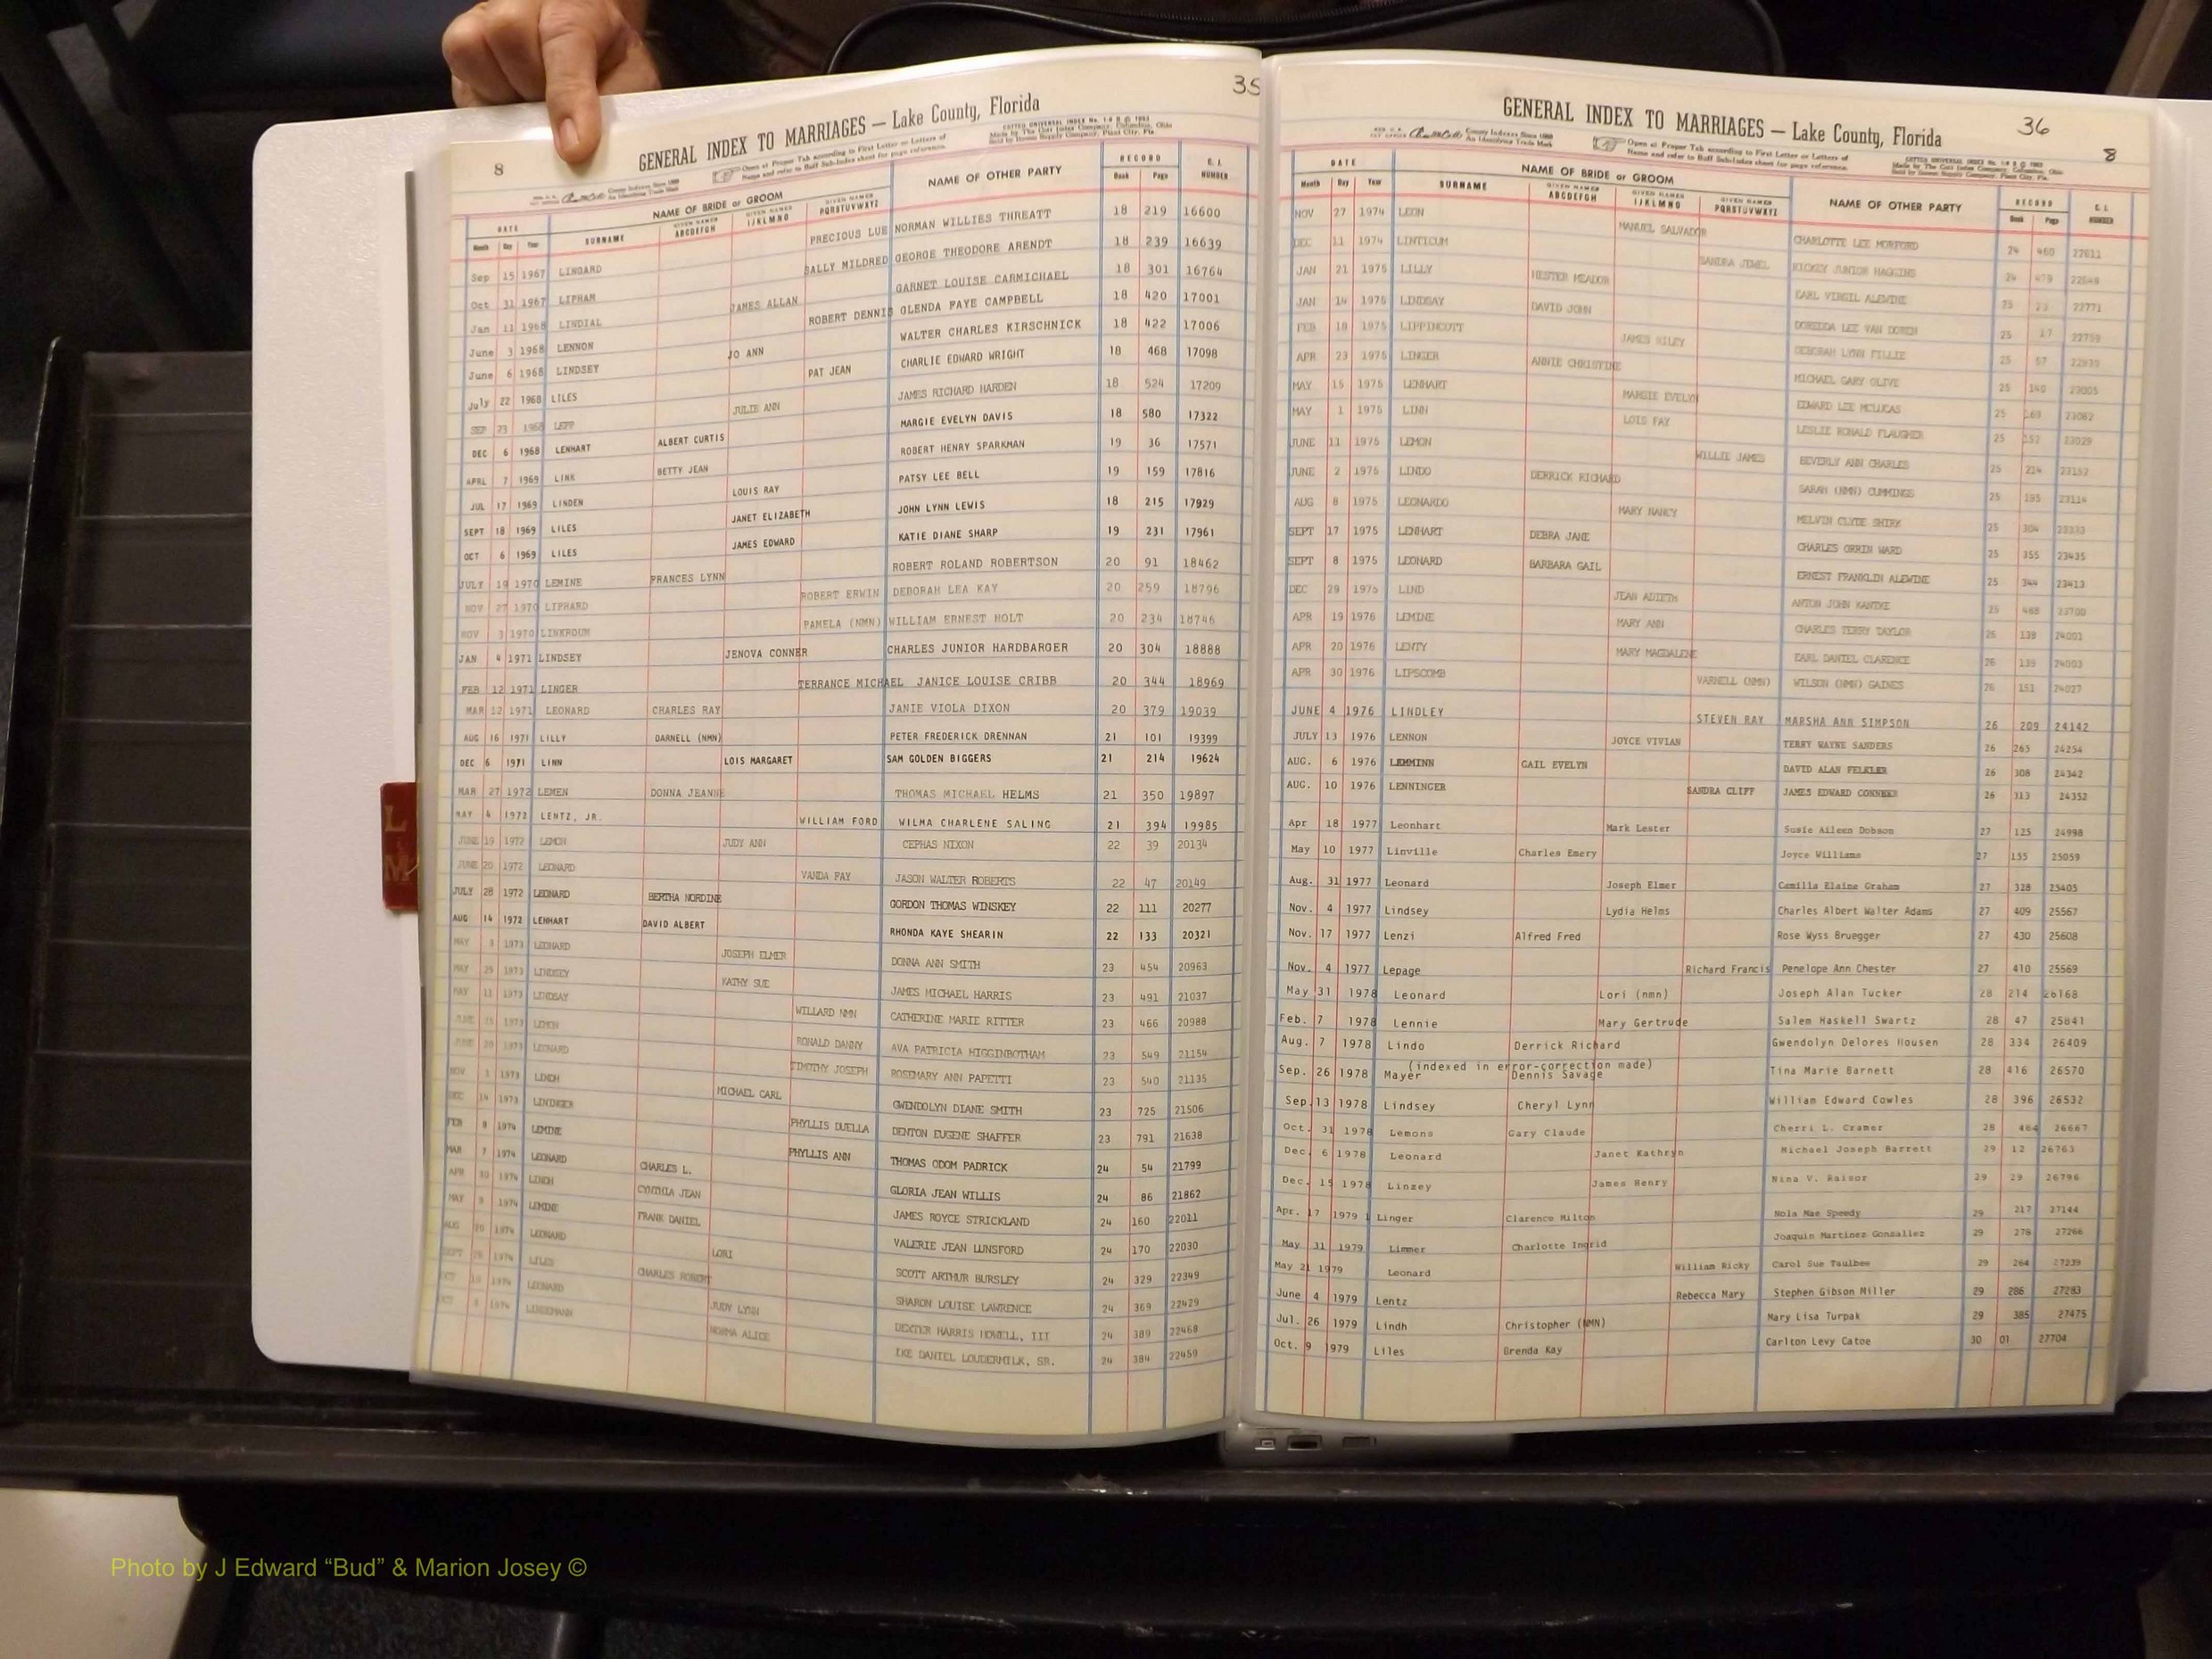 35
8
GENERAL INDEX TO MARRIAGES — Lake County, Florida
Open at Proper Tab according to First Letter or Letters of
Name and refer to Buff Sub-Index sheet for page reference.
DATE NAME OF BRIDE or GROOM NAME OF OTHER PARTY RECORD
Month Day Year SURNAME GIVEN NAMES ABCDEFGH GIVEN NAMES IJKLMNO GIVEN NAMES PQRSTUVWXYZ Book Page NUMBER
Sep 15 1967 LINGARD PRECIOUS LUE NORMAN WILLIES THREATT 18 219 16600
Oct 31 1967 LIPHAM SALLY MILDRED GEORGE THEODORE ARENDT 18 239 16639
Jan 11 1968 LINDIAL JAMES ALLAN GARNET LOUISE CARMICHAEL 18 301 16764
June 3 1968 LENNON ROBERT DENNIS GLENDA FAYE CAMPBELL 18 420 17001
June 6 1968 LINDSEY JO ANN WALTER CHARLES KIRSCHNICK 18 422 17006
July 22 1968 LILES PAT JEAN CHARLIE EDWARD WRIGHT 18 468 17098
SEP 23 1968 LEPP JULIE ANN JAMES RICHARD HARDEN 18 524 17209
DEC 6 1968 LENHART ALBERT CURTIS MARGIE EVELYN DAVIS 18 580 17322
APRL 7 1969 LINK BETTY JEAN ROBERT HENRY SPARKMAN 19 36 17571
JUL 17 1969 LINDEN LOUIS RAY PATSY LEE BELL 19 159 17816
SEPT 18 1969 LILES JANET ELIZABETH JOHN LYNN LEWIS 18 215 17929
OCT 6 1969 LILES JAMES EDWARD KATIE DIANE SHARP 19 231 17961
JULY 19 1970 LEMINE FRANCES LYNN ROBERT ROLAND ROBERTSON 20 91 18462
NOV 27 1970 LIPHARD ROBERT ERWIN DEBORAH LEA KAY 20 259 18796
NOV 3 1970 LINKROUM PAMELA (NMN) WILLIAM ERNEST HOLT 20 234 18746
JAN 4 1971 LINDSEY JENOVA CONNER CHARLES JUNIOR HARDBARGER 20 304 18888
FEB 12 1971 LINGER TERRANCE MICHAEL JANICE LOUISE CRIBB 20 344 18969
MAR 12 1971 LEONARD CHARLES RAY JANIE VIOLA DIXON 20 379 19039
AUG 16 1971 LILLY DARNELL (NMN) PETER FREDERICK DRENNAN 21 101 19399
DEC 6 1971 LINN LOIS MARGARET SAM GOLDEN BIGGERS 21 214 19624
MAR 27 1972 LEMEN DONNA JEANNE THOMAS MICHAEL HELMS 21 350 19897
MAY 4 1972 LENTZ, JR. WILLIAM FORD WILMA CHARLENE SALING 21 394 19985
JUNE 19 1972 LEMON JUDY ANN CEPHAS NIXON 22 39 20134
JUNE 20 1972 LEONARD VANDA FAY JASON WALTER ROBERTS 22 47 20149
JULY 28 1972 LEONARD BERTHA NORDINE GORDON THOMAS WINSKEY 22 111 20277
AUG 14 1972 LENHART DAVID ALBERT RHONDA KAYE SHEARIN 22 133 20321
MAY 3 1973 LEONARD JOSEPH ELMER DONNA ANN SMITH 23 454 20963
MAY 25 1973 LINDSEY KATHY SUE JAMES MICHAEL HARRIS 23 491 21037
MAY 11 1973 LINDSAY WILLARD NMN CATHERINE MARIE RITTER 23 466 20988
JUNE 1973 LEMON RONALD DANNY AVA PATRICIA HIGGINBOTHAM 23 549 21154
JUNE 20 1973 LEONARD TIMOTHY JOSEPH ROSEMARY ANN PAPETTI 23 540 21135
NOV 1 1973 LINCH MICHAEL CARL GWENDOLYN DIANE SMITH 23 725 21506
DEC 14 1973 LININGER PHYLLIS DUELLA DENTON EUGENE SHAFFER 23 791 21638
FEB 8 1974 LEMINE PHYLLIS ANN THOMAS ODOM PADRICK 24 54 21799
MAR 7 1974 LEONARD CHARLES L. GLORIA JEAN WILLIS 24 86 21862
APR 30 1974 LINCH CYNTHIA JEAN JAMES ROYCE STRICKLAND 24 160 22011
MAY 9 1974 LEMINE FRANK DANIEL VALERIE JEAN LUNSFORD 24 170 22030
AUG 1974 LEONARD LORI SCOTT ARTHUR BURSLEY 24 329 22349
SEPT 1974 LILES CHARLES ROBERT SHARON LOUISE LAWRENCE 24 369 22429
OCT 1974 LEONARD JUDY LYNN DEXTER HARRIS HOWELL, III 24 389 22468
OCT 1974 LINDEMANN NORMA ALICE IKE DANIEL LOUDERMILK, SR. 24 384 22459
L
M
GENERAL INDEX TO MARRIAGES — Lake County, Florida
36
8
Open at Proper Tab according to First Letter or Letters of
Name and refer to Buff Sub-Index sheet for page reference.
DATE NAME OF BRIDE or GROOM NAME OF OTHER PARTY RECORD
Month Day Year SURNAME GIVEN NAMES ABCDEFGH GIVEN NAMES IJKLMNO GIVEN NAMES PQRSTUVWXYZ Book Page NUMBER
NOV 27 1974 LEON MANUEL SALVADOR CHARLOTTE LEE MORFORD 24 460 22611
DEC 11 1974 LINTICUM SANDRA JEWEL RICKEY JUNIOR HAGGINS 24 479 22648
JAN 21 1975 LILLY HESTER MEADOR EARL VIRGIL ALEWINE 25 23 22771
JAN 14 1975 LINDSAY DAVID JOHN DOREDDA LEE VAN DOREN 25 17 22759
FEB 18 1975 LIPPINCOTT JAMES RILEY DEBORAH LYNN FILLIE 25 67
APR 23 1975 LINGER ANNIE CHRISTINE MICHAEL GARY OLIVE 25 140 23005
MAY 15 1975 LENHART MARGIE EVELYN EDWARD LEE MCLUCAS 25 169 23062
MAY 1 1975 LINN LOIS FAY LESLIE RONALD FLAUGHER 25 152 23029
JUNE 11 1975 LEMON WILLIE JAMES BEVERLY ANN CHARLES 25 214
JUNE 2 1975 LINDO DERRICK RICHARD SARAH (NMN) CUMMINGS 25 195 23114
AUG 8 1975 LEONARDO MARY NANCY MELVIN CLYDE SHIRK 25 304 23333
SEPT 17 1975 LENHART DEBRA JANE CHARLES ORRIN WARD 25 355 23435
SEPT 8 1975 LEONARD BARBARA GAIL ERNEST FRANKLIN ALEWINE 25 344 23413
DEC 29 1975 LIND JEAN ADIETH ANTON JOHN KANTKE 25 488 23700
APR 19 1976 LEMINE MARY ANN CHARLES TERRY TAYLOR 26 138 24001
APR 20 1976 LENTY MARY MAGDALENE EARL DANIEL CLARENCE 26 139 24003
APR 30 1976 LIPSCOMB VARNELL (NMN) WILSON (NMN) GAINES 26 151 24027
JUNE 4 1976 LINDLEY STEVEN RAY MARSHA ANN SIMPSON 26 209 24142
JULY 13 1976 LENNON JOYCE VIVIAN TERRY WAYNE SANDERS 26 265 24254
AUG. 6 1976 LEMMINN GAIL EVELYN DAVID ALAN FELKLER 26 308 24342
AUG. 10 1976 LENNINGER SANDRA CLIFF JAMES EDWARD CONNEER 26 313 24352
Apr 18 1977 Leonhart Mark Lester Susie Aileen Dobson 27 125 24998
May 10 1977 Linville Charles Emery Joyce Williams 27 155 25059
Aug. 31 1977 Leonard Joseph Elmer Camilla Elaine Graham 27 328 25405
Nov. 4 1977 Lindsey Lydia Helms Charles Albert Walter Adams 27 409 25567
Nov. 17 1977 Lenzi Alfred Fred Rose Wyss Bruegger 27 430 25608
Nov. 4 1977 Lepage Richard Francis Penelope Ann Chester 27 410 25569
May 31 1978 Leonard Lori (nmn) Joseph Alan Tucker 28 214 26168
Feb. 7 1978 Lennie Mary Gertrude Salem Haskell Swartz 28 47 25841
Aug. 7 1978 Lindo Derrick Richard Gwendolyn Delores Housen 28 334 26409
(indexed in error-correction made)
Sep. 26 1978 Mayer Dennis Savage Tina Marie Barnett 28 416 26570
Sep. 13 1978 Lindsey Cheryl Lynn William Edward Cowles 28 396 26532
Oct. 31 1978 Lemons Gary Claude Cherri L. Cramer 28 464 26667
Dec. 6 1978 Leonard Janet Kathryn Michael Joseph Barrett 29 12 26763
Dec. 15 1978 Linzey James Henry Nina V. Raisor 29 29 26796
Apr. 17 1979 Linger Clarence Milton Nola Mae Speedy 29 217 27144
May 31 1979 Limmer Charlotte Ingrid Joaquin Martinez Gonzallez 29 278 27266
May 21 1979 Leonard William Ricky Carol Sue Taulbee 29 264 27239
June 4 1979 Lentz Rebecca Mary Stephen Gibson Miller 29 286 27283
Jul. 26 1979 Lindh Christopher (NMN) Mary Lisa Turpak 29 385 27475
Oct. 9 1979 Liles Brenda Kay Carlton Levy Catoe 30 01 27704
Photo by J Edward “Bud” & Marion Josey ©